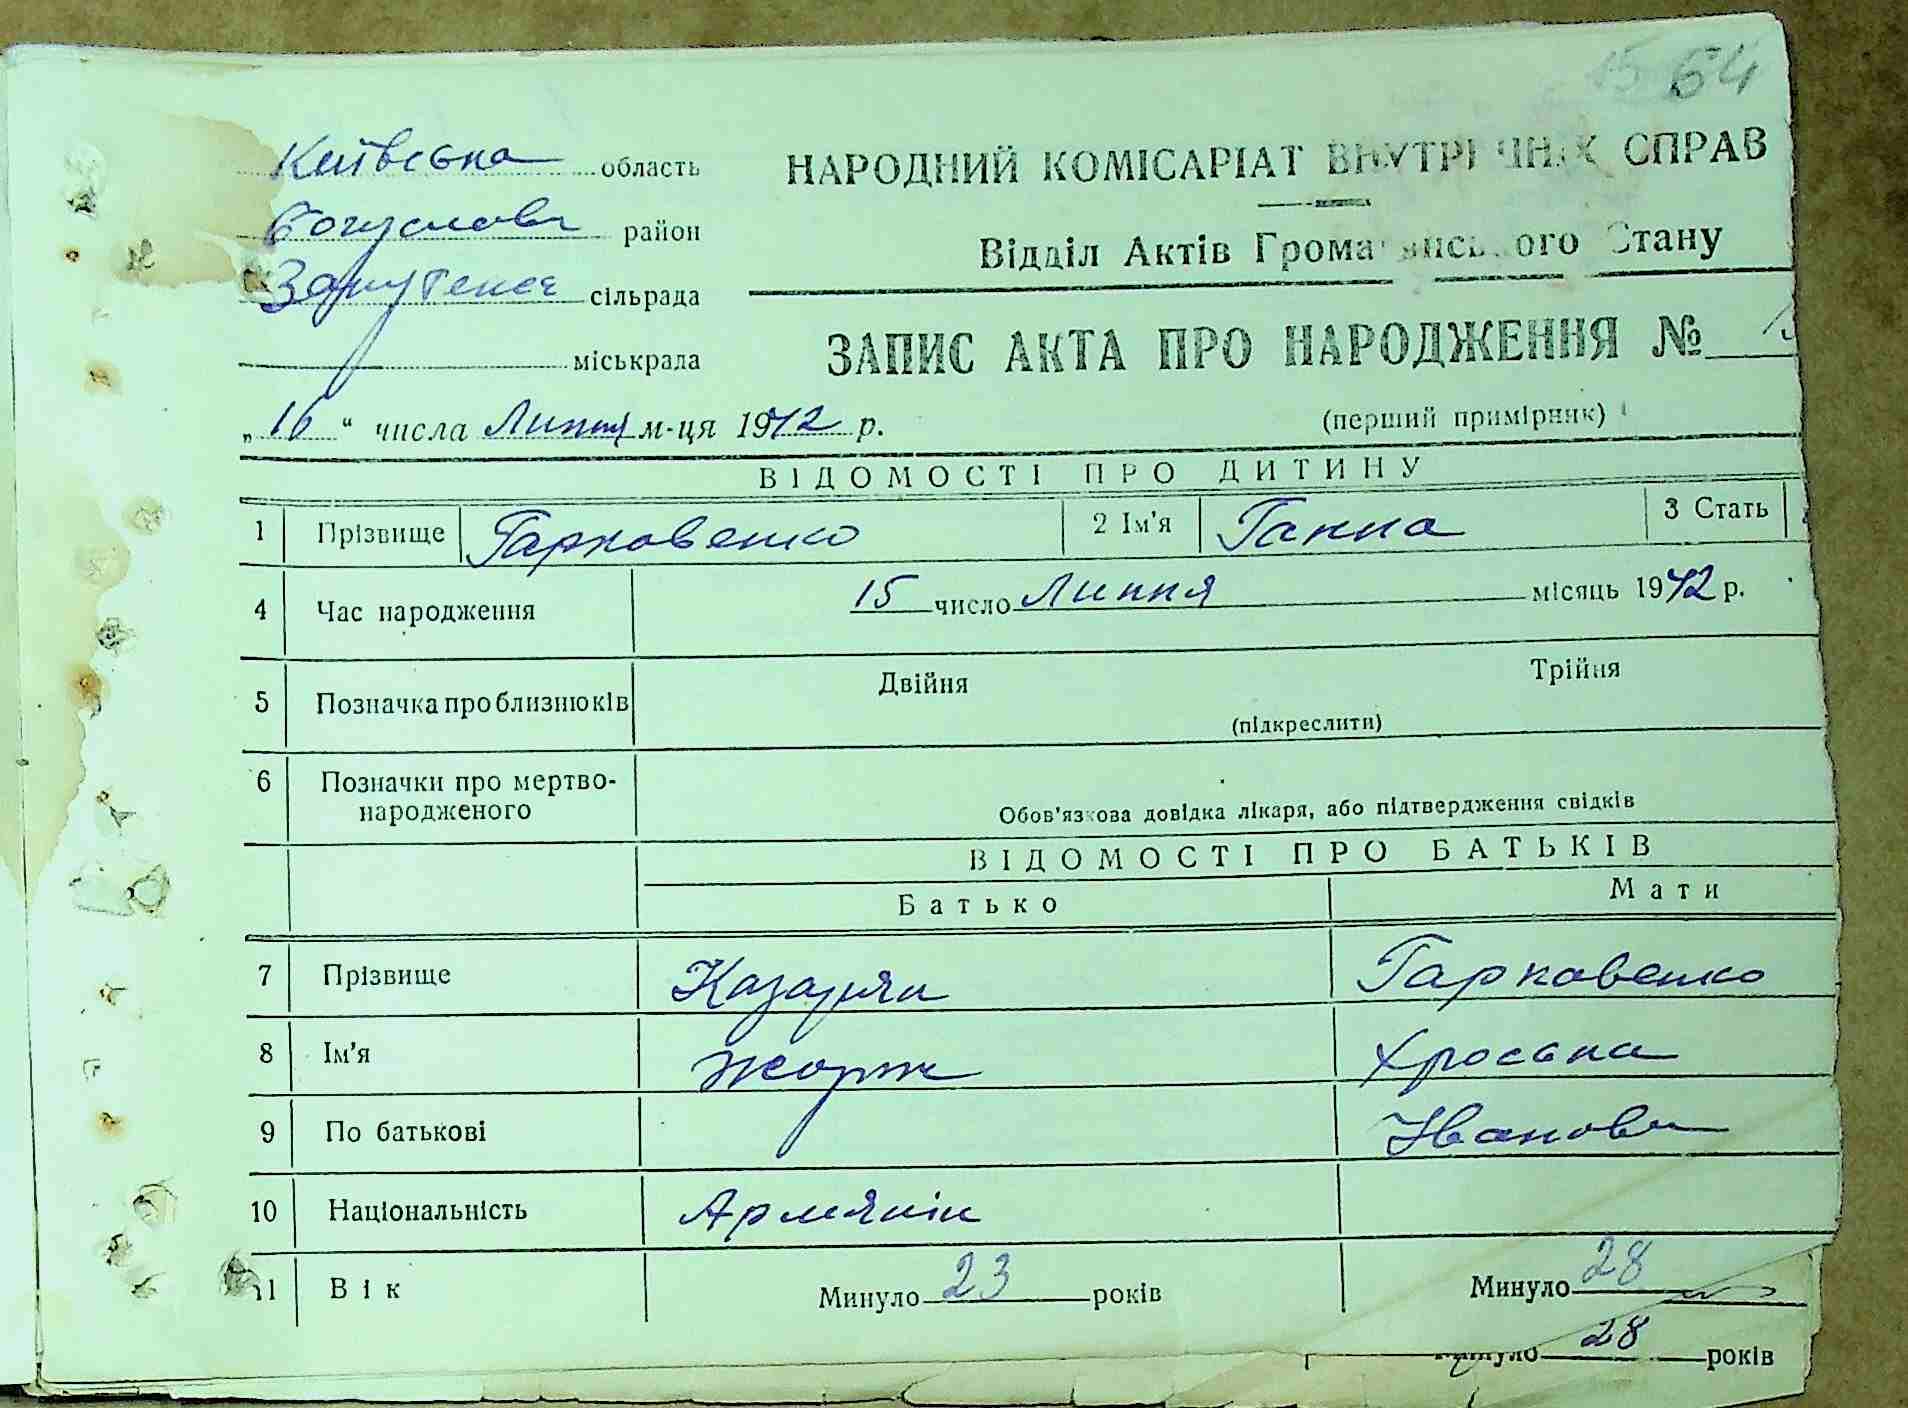 64
Київська область
Богуслова район
сільрада
міськрада
НАРОДНИЙ КОМІСАРІАТ ВНУТРІШНІХ СПРАВ
Відділ Актів Громадянського Стану
ЗАПИС АКТА ПРО НАРОДЖЕННЯ №
„16“ числа Липня м-ця 1942 р.
(перший примірник)
ВІДОМОСТІ ПРО ДИТИНУ
1 Прізвище Гарковенко 2 Ім'я Ганна 3 Стать
4 Час народження 15 число Липня місяць 1942 р.
5 Позначка про близнюків Двійня Трійня
(підкреслити)
6 Позначки про мертво-
народженого
Обов'язкова довідка лікаря, або підтвердження свідків
ВІДОМОСТІ ПРО БАТЬКІВ
Батько Мати
7 Прізвище Казарян Гарковенко
8 Ім'я Жорж Хроська
9 По батькові Іванови
10 Національність Армянін
11 Вік Минуло 23 років Минуло 28
Минуло 28 років